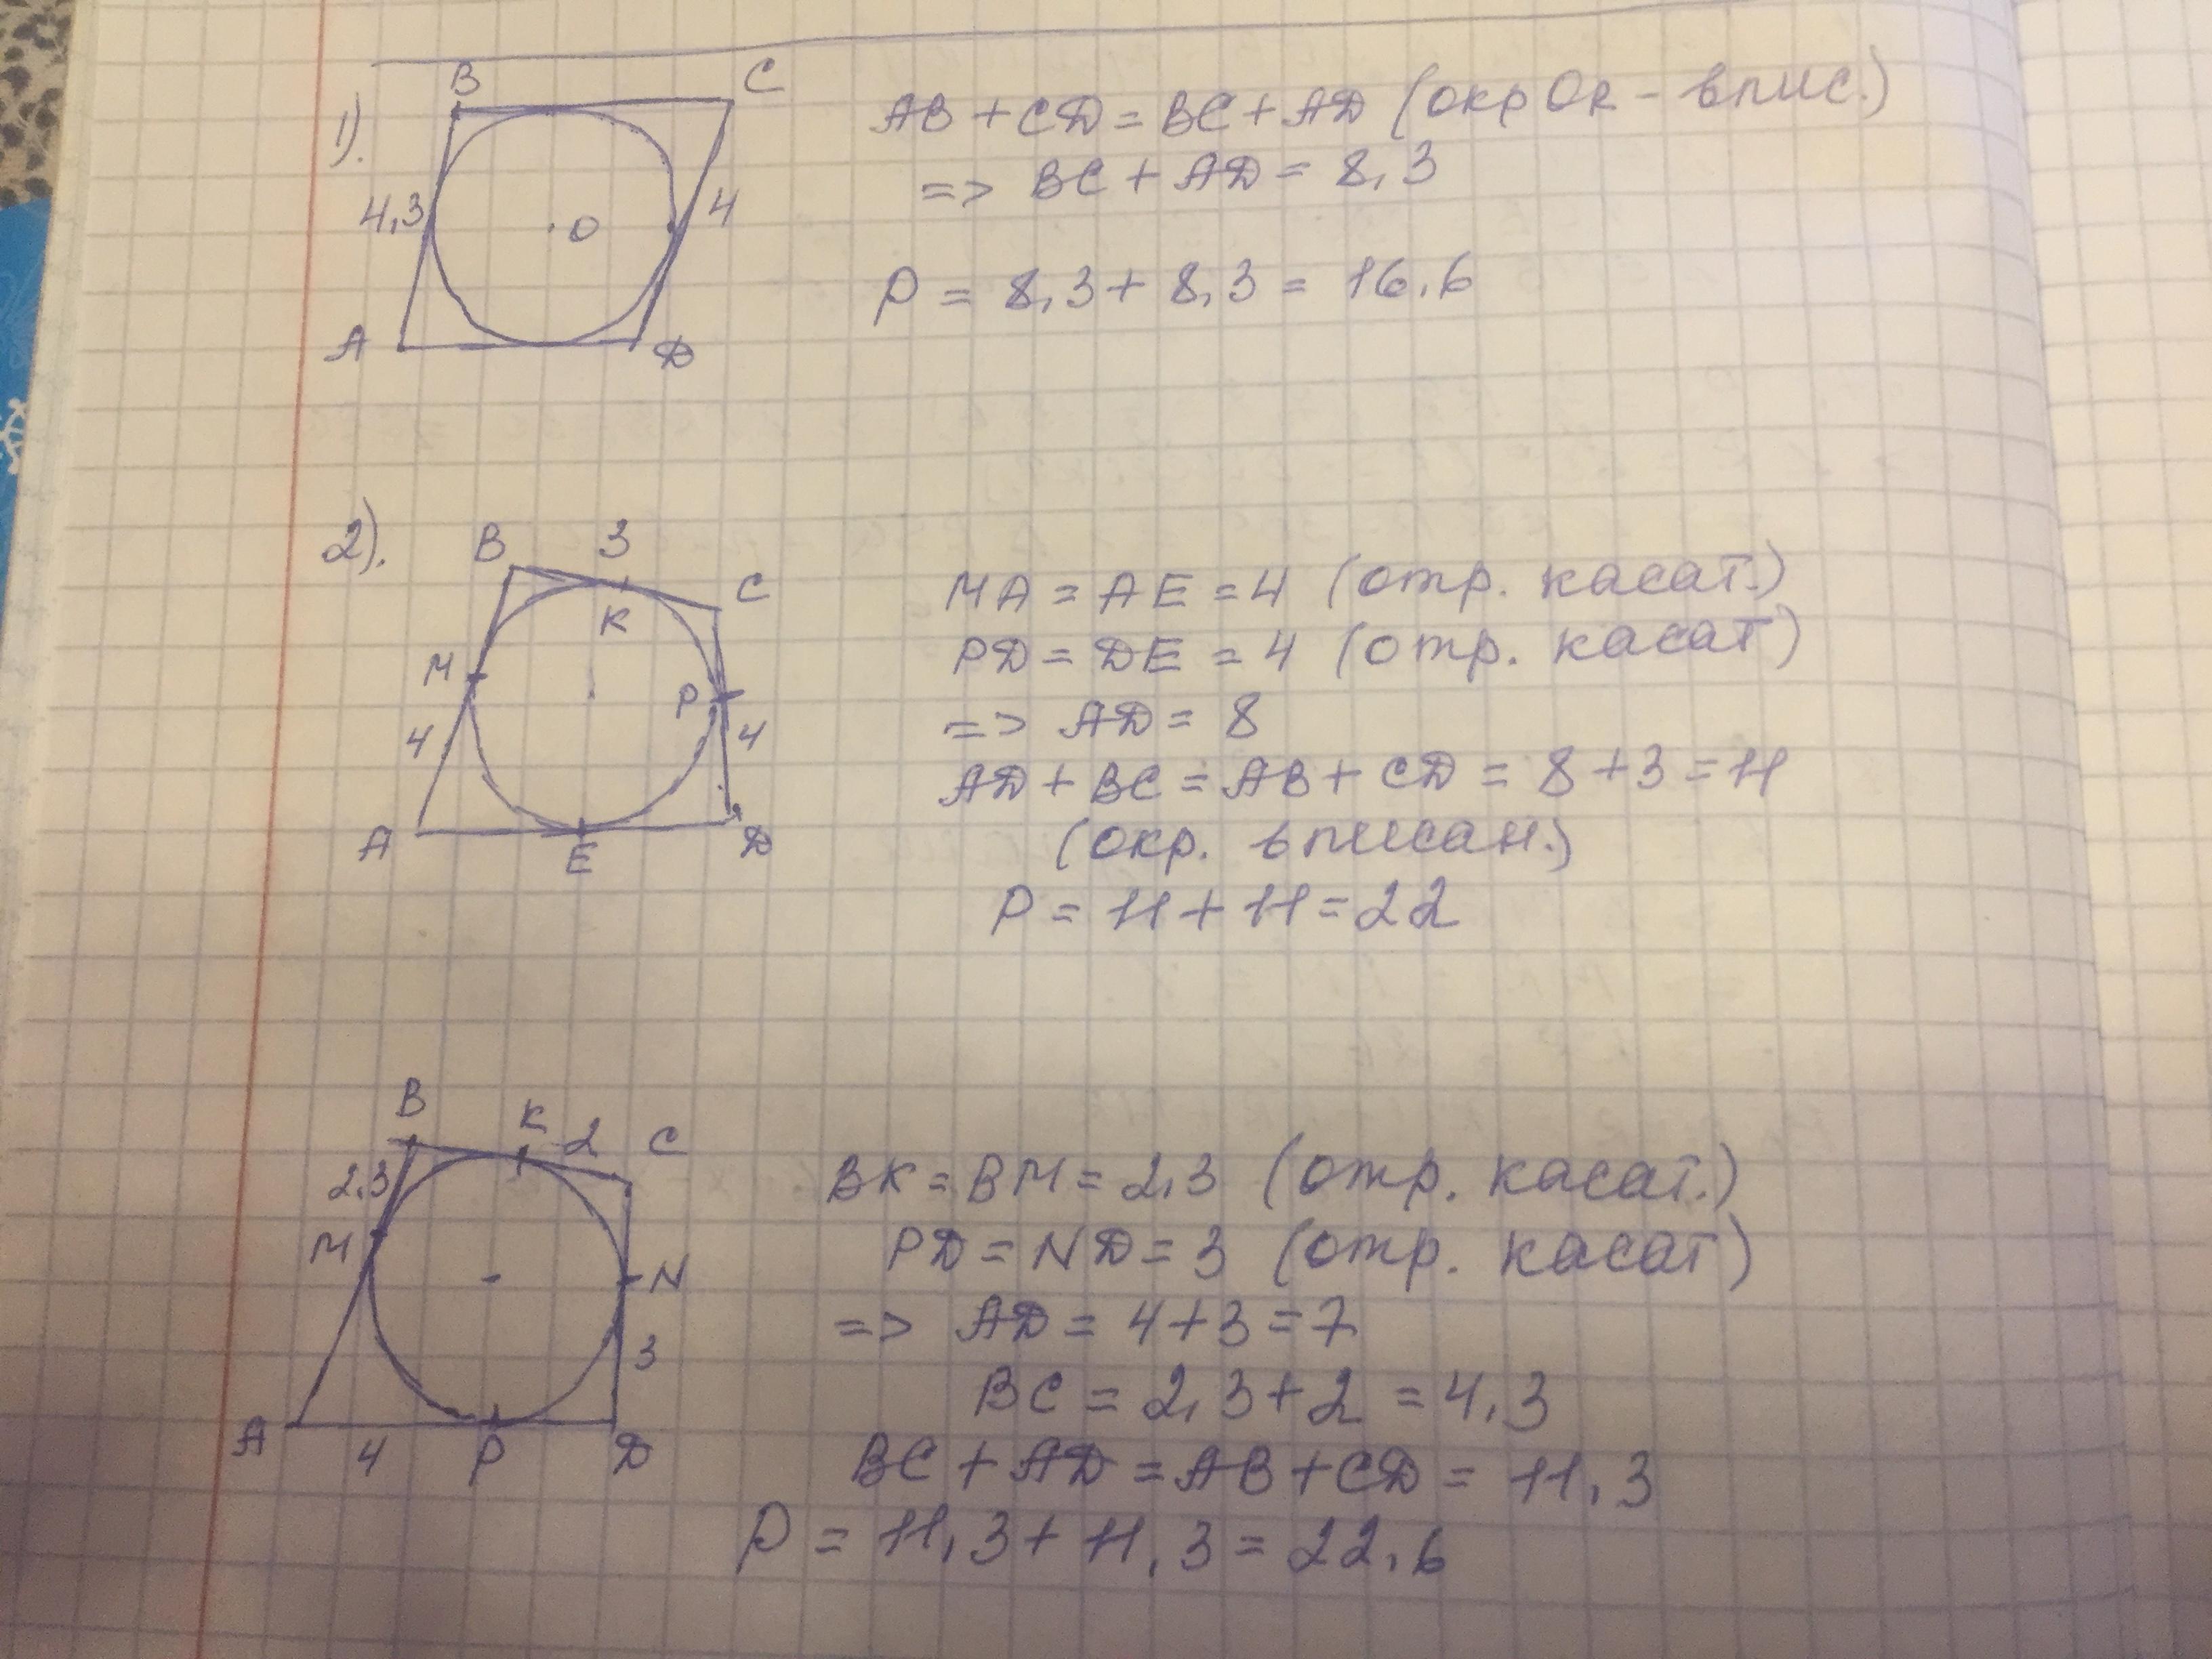 1).
B
C
4,3
4
O
A
D
AB + CD = BC + AD (окр OR - впис.)
=> BC + AD = 8,3
P = 8,3 + 8,3 = 16,6
2).
B
3
C
K
M
P
4
4
A
E
D
MA = AE = 4 (отр. касат.)
PD = DE = 4 (отр. касат)
=> AD = 8
AD + BC = AB + CD = 8 + 3 = 11
(окр. вписан.)
P = 11 + 11 = 22
B
K
2
C
2,3
M
N
3
A
4
P
D
BK = BM = 2,3 (отр. касат.)
PD = ND = 3 (отр. касат)
=> AD = 4 + 3 = 7
BC = 2,3 + 2 = 4,3
BC + AD = AB + CD = 11,3
P = 11,3 + 11,3 = 22,6